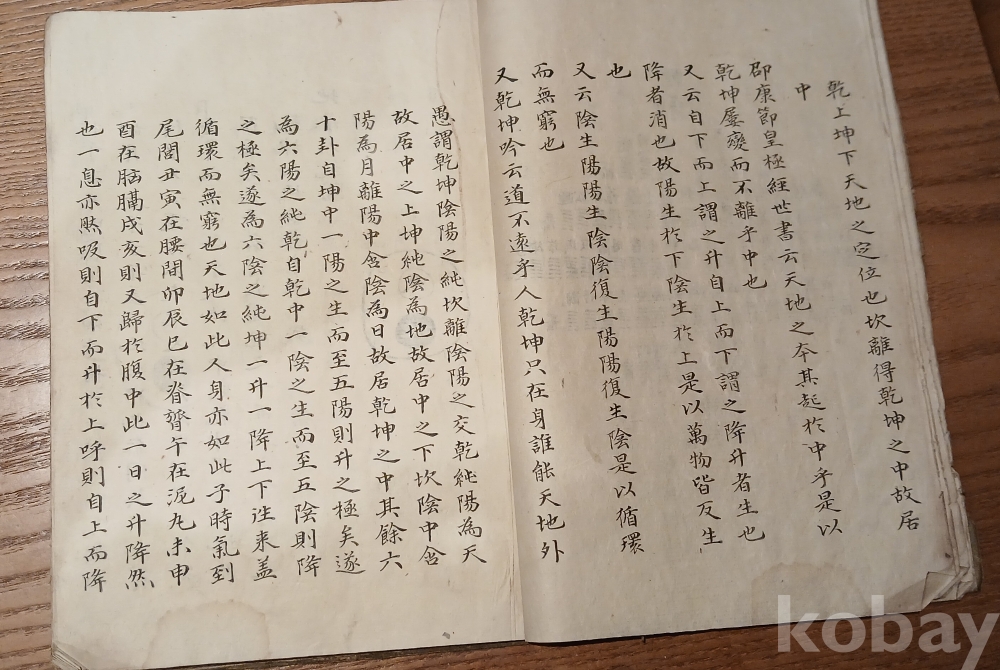 乾上坤下天地之定位也坎離得乾坤之中故居
中
邵康節皇極經世書云天地之本其起於中乎是以
乾坤屡變而不離乎中也
又云自下而上謂之升自上而下謂之降升者生也
降者消也故陽生於下陰生於上是以萬物皆反生
也
又云陰生陽陽生陰陰復生陽陽復生陰是以循環
而無窮也
又乾坤吟云道不遠乎人乾坤只在身誰能天地外
愚謂乾坤陰陽之純坎離陰陽之交乾純陽為天
故居中之上坤純陰為地故居中之下坎陰中含
陽為月離陽中含陰為日故居乾坤之中其餘六
十卦自坤中一陽之生而至五陽則升之極矣遂
為六陽之純乾自乾中一陰之生而至五陰則降
之極矣遂為六陰之純坤一升一降上下往来盖
循環而無窮也天地如此人身亦如此子時氣到
尾閭丑寅在腰間卯辰巳在脊膂午在泥丸未申
酉在胸膈戌亥則又歸於腹中此一日之升降然
也一息亦然吸則自下而升於上呼則自上而降
kobay